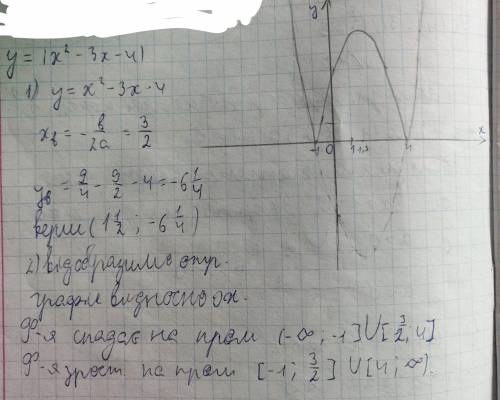 y = |x² - 3x - 4|
1) y = x² - 3x - 4
xв = - в/2a = 3/2
yв = 9/4 - 9/2 - 4 = -6 1/4
верш (1 1/2 ; -6 1/4)
2) відобразимо отр.
графік відносно ох.
Ф-я спадає на пром (-∞; -1] U [3/2; 4]
Ф-я зрост. на пром [-1; 3/2] U [4; ∞).
y
x
-1 0 1 1,5 4